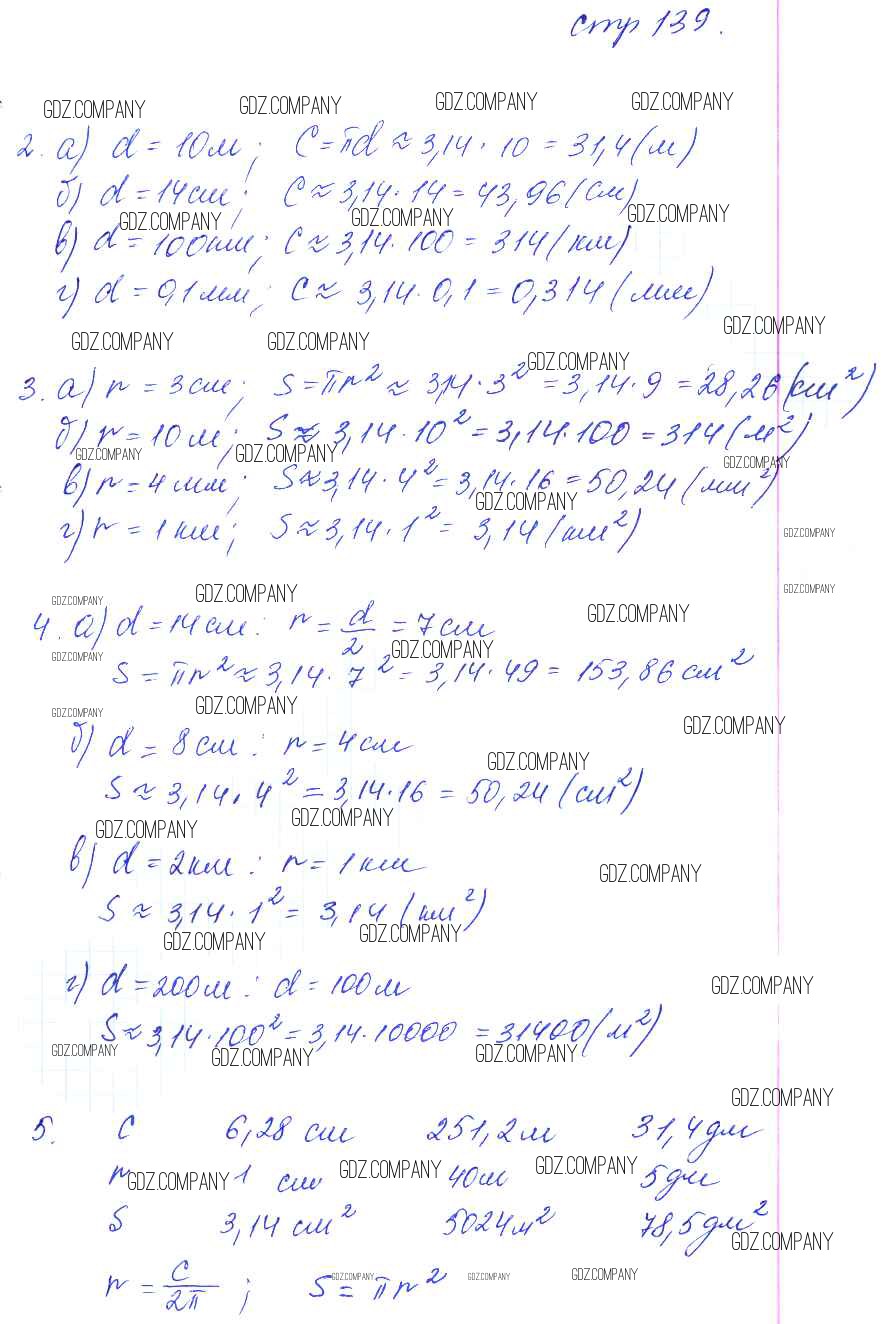 стр 139.
GDZ.COMPANY GDZ.COMPANY GDZ.COMPANY GDZ.COMPANY
2. а) d = 10м; C = πd ≈ 3,14 · 10 = 31,4 (м)
б) d = 14см; C ≈ 3,14 · 14 = 43,96 (см)
GDZ.COMPANY GDZ.COMPANY GDZ.COMPANY
в) d = 100км; C ≈ 3,14 · 100 = 314 (км)
г) d = 0,1мм; C ≈ 3,14 · 0,1 = 0,314 (мм)
GDZ.COMPANY
GDZ.COMPANY GDZ.COMPANY GDZ.COMPANY
3. а) r = 3см; S = πr² ≈ 3,14 · 3² = 3,14 · 9 = 28,26 (см²)
б) r = 10м; S ≈ 3,14 · 10² = 3,14 · 100 = 314 (м²)
GDZ.COMPANY GDZ.COMPANY GDZ.COMPANY
в) r = 4мм; S ≈ 3,14 · 4² = 3,14 · 16 = 50,24 (мм²)
GDZ.COMPANY
г) r = 1км; S ≈ 3,14 · 1² = 3,14 (км²)
GDZ.COMPANY
GDZ.COMPANY GDZ.COMPANY GDZ.COMPANY GDZ.COMPANY
4. а) d = 14см: r = d/2 = 7см
GDZ.COMPANY GDZ.COMPANY
S = πr² ≈ 3,14 · 7² = 3,14 · 49 = 153,86 см²
GDZ.COMPANY GDZ.COMPANY GDZ.COMPANY
б) d = 8см: r = 4см
GDZ.COMPANY
S ≈ 3,14 · 4² = 3,14 · 16 = 50,24 (см²)
GDZ.COMPANY GDZ.COMPANY
в) d = 2км: r = 1км
GDZ.COMPANY
S ≈ 3,14 · 1² = 3,14 (км²)
GDZ.COMPANY GDZ.COMPANY
г) d = 200м: d = 100м
GDZ.COMPANY
S ≈ 3,14 · 100² = 3,14 · 10000 = 31400 (м²)
GDZ.COMPANY GDZ.COMPANY GDZ.COMPANY
GDZ.COMPANY
5. C 6,28 см 251,2м 31,4дм
r 1 см 40м 5дм
GDZ.COMPANY GDZ.COMPANY GDZ.COMPANY
S 3,14 см² 5024м² 78,5дм²
GDZ.COMPANY
r = C/2π; S = πr²
GDZ.COMPANY GDZ.COMPANY GDZ.COMPANY